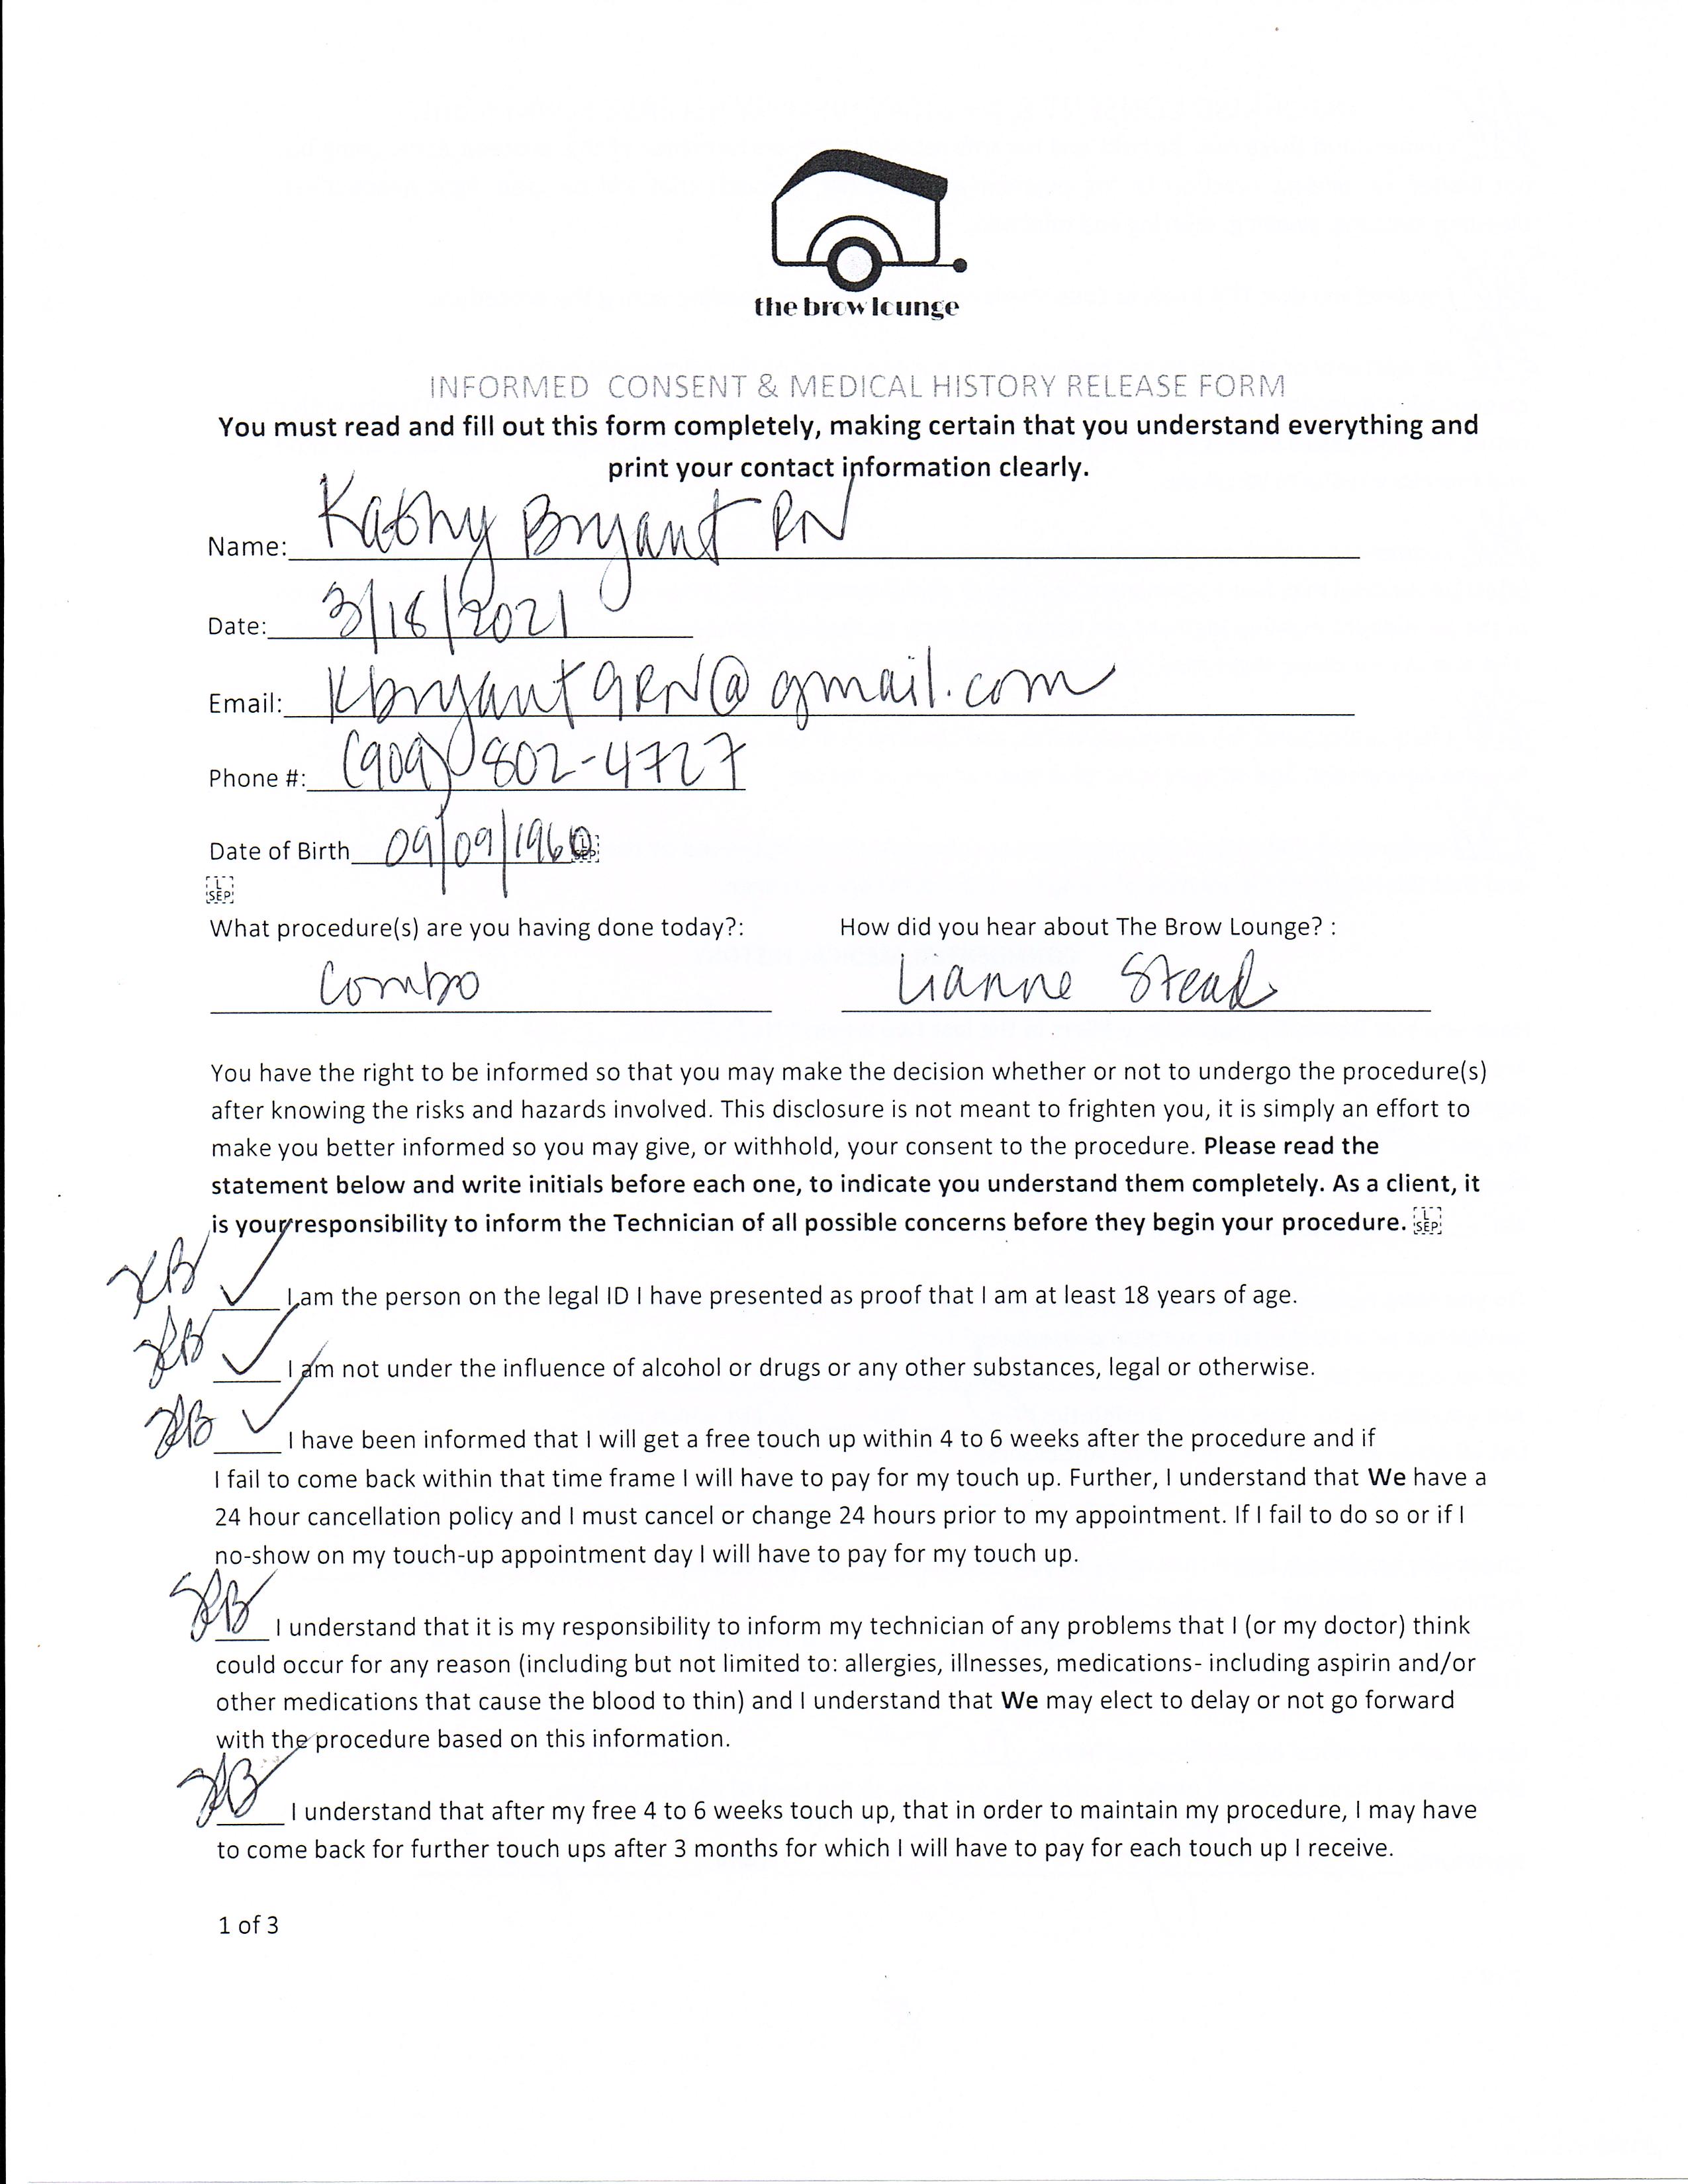 the brow lounge
INFORMED CONSENT & MEDICAL HISTORY RELEASE FORM
You must read and fill out this form completely, making certain that you understand everything and
print your contact information clearly.
Name: Kathy Bryant RN
Date: 3/18/2021
Email: Kbryant9RN@gmail.com
Phone #: (909) 802-4727
Date of Birth 09/09/1960
L
SEP
What procedure(s) are you having done today?: How did you hear about The Brow Lounge? :
Combo Lianne Stead
You have the right to be informed so that you may make the decision whether or not to undergo the procedure(s)
after knowing the risks and hazards involved. This disclosure is not meant to frighten you, it is simply an effort to
make you better informed so you may give, or withhold, your consent to the procedure. Please read the
statement below and write initials before each one, to indicate you understand them completely. As a client, it
is your responsibility to inform the Technician of all possible concerns before they begin your procedure. L SEP
KB ✓ I am the person on the legal ID I have presented as proof that I am at least 18 years of age.
KB ✓ I am not under the influence of alcohol or drugs or any other substances, legal or otherwise.
KB ✓ I have been informed that I will get a free touch up within 4 to 6 weeks after the procedure and if
I fail to come back within that time frame I will have to pay for my touch up. Further, I understand that We have a
24 hour cancellation policy and I must cancel or change 24 hours prior to my appointment. If I fail to do so or if I
no-show on my touch-up appointment day I will have to pay for my touch up.
KB I understand that it is my responsibility to inform my technician of any problems that I (or my doctor) think
could occur for any reason (including but not limited to: allergies, illnesses, medications- including aspirin and/or
other medications that cause the blood to thin) and I understand that We may elect to delay or not go forward
with the procedure based on this information.
KB I understand that after my free 4 to 6 weeks touch up, that in order to maintain my procedure, I may have
to come back for further touch ups after 3 months for which I will have to pay for each touch up I receive.
1 of 3